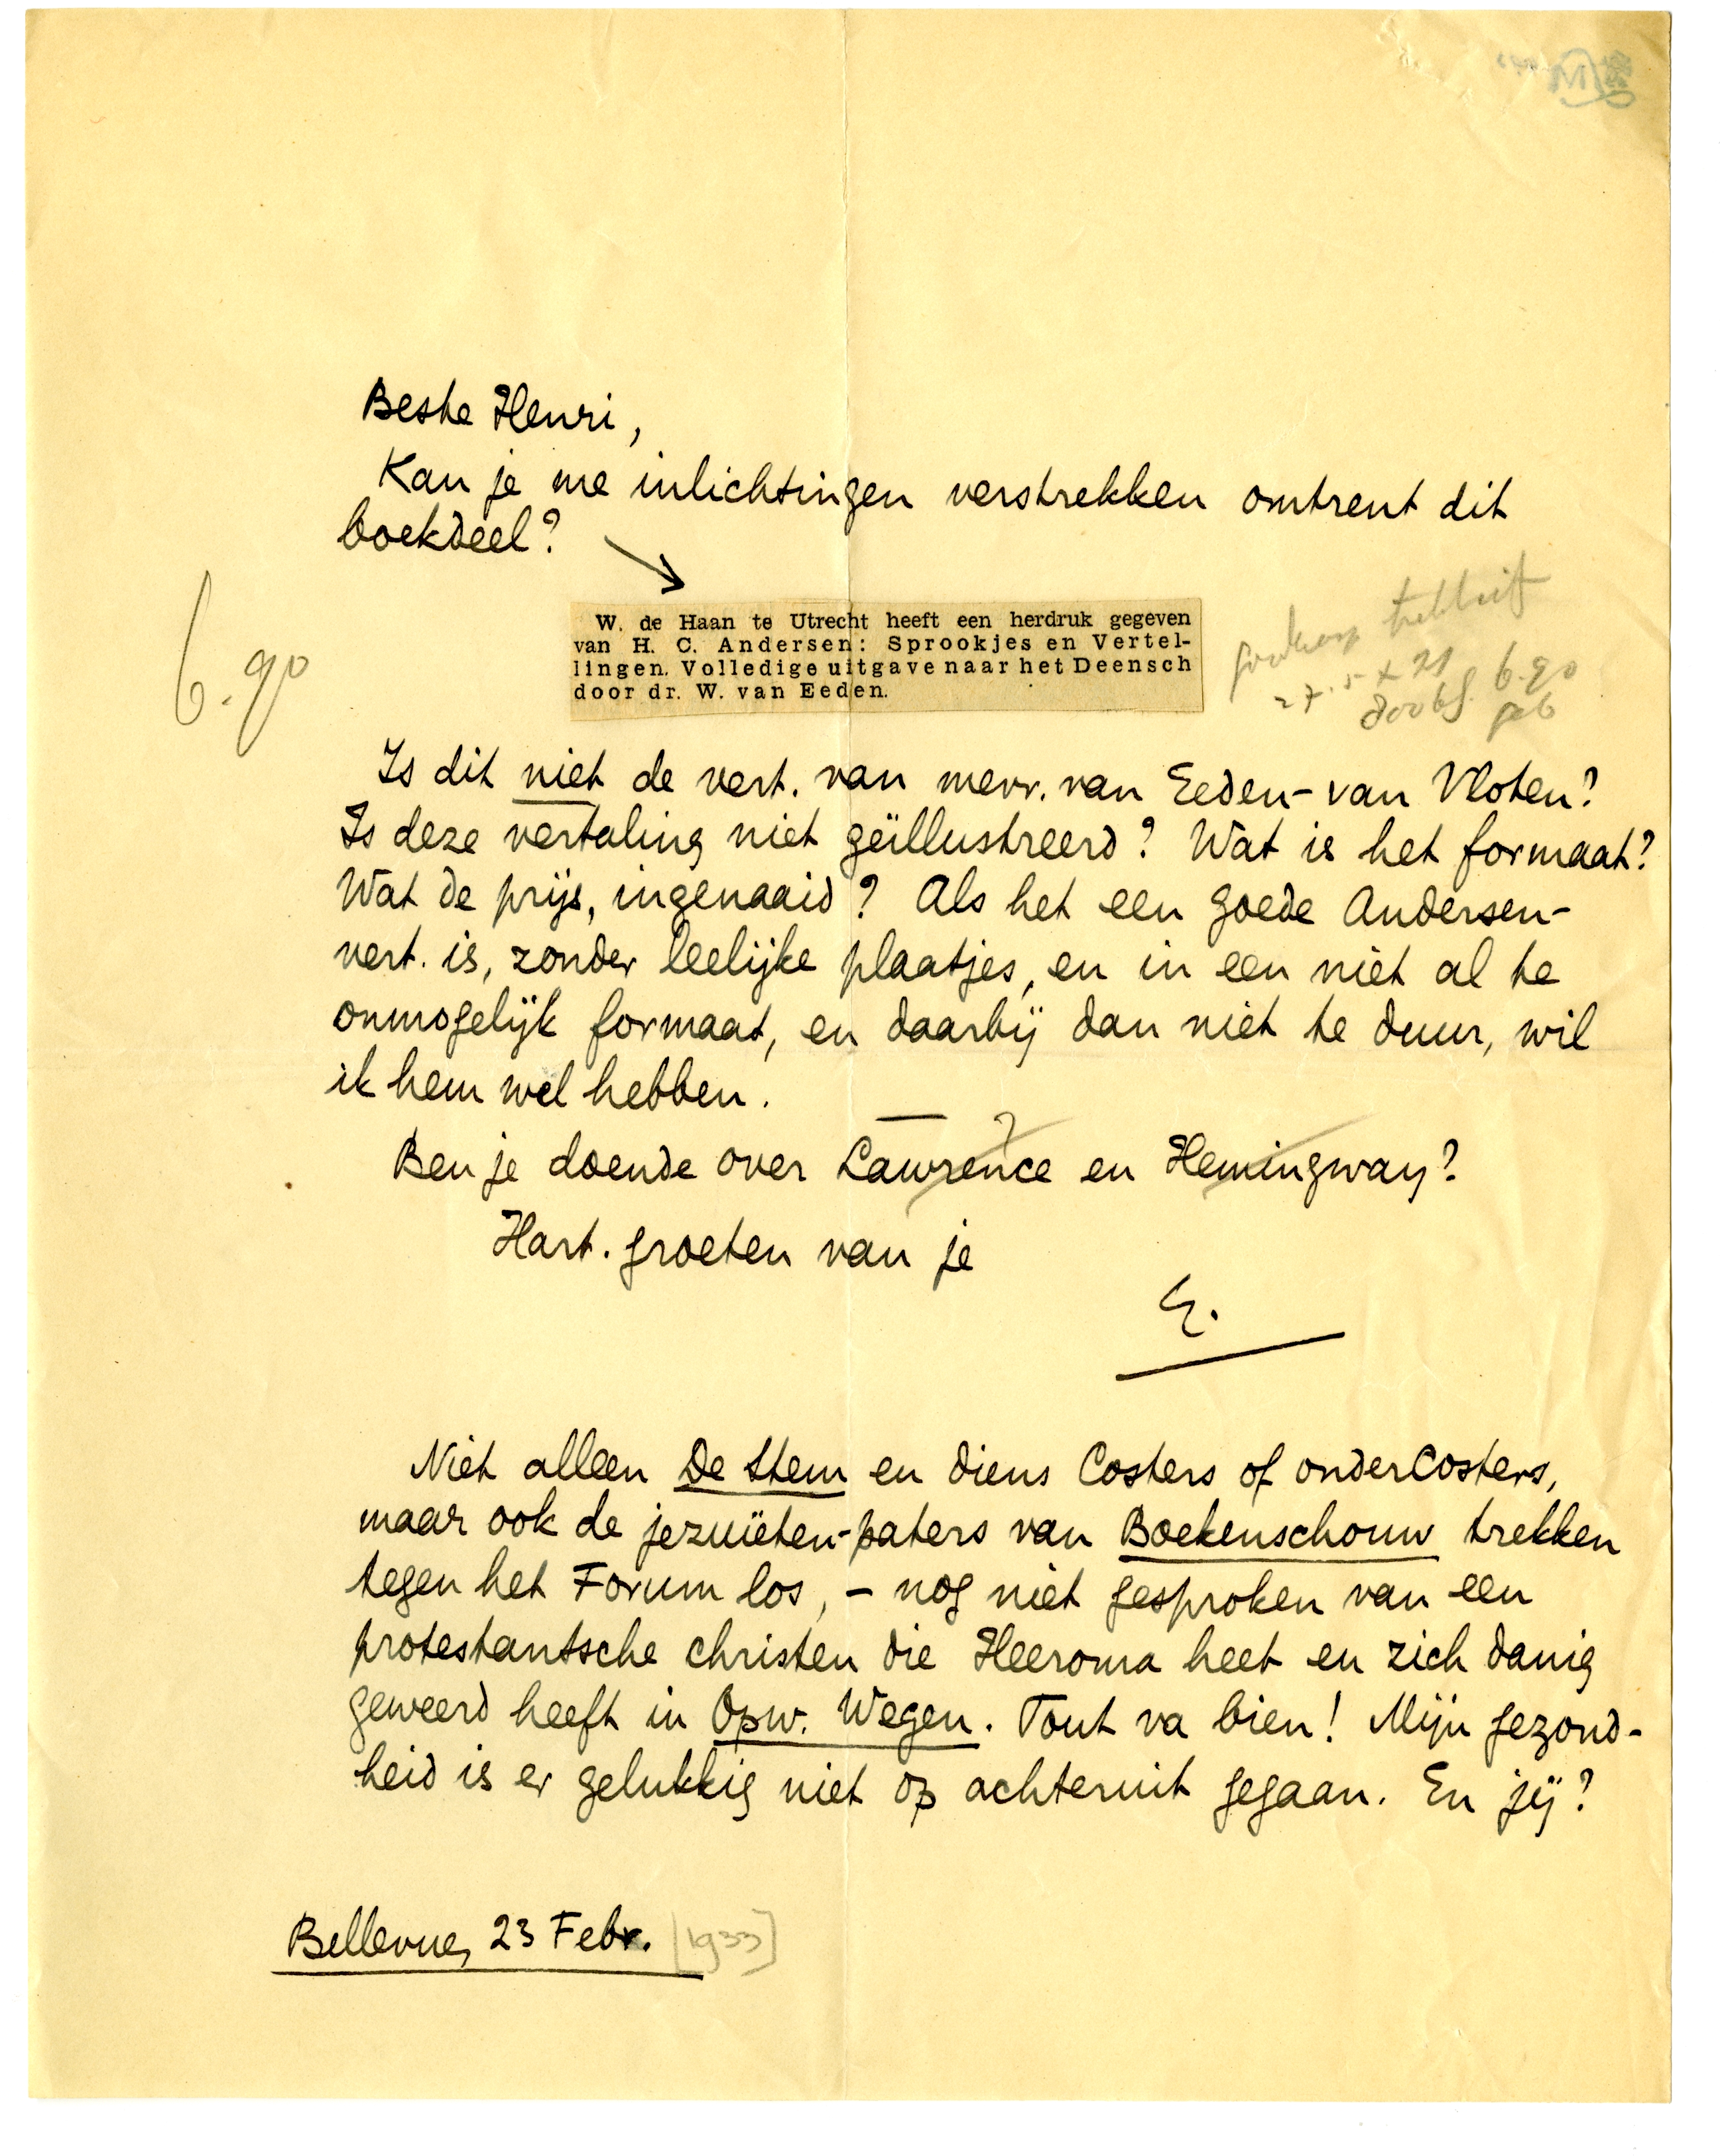 Beste Henri,
Kan je me inlichtingen verstrekken omtrent dit
boekdeel?
W. de Haan te Utrecht heeft een herdruk gegeven
van H. C. Andersen: Sprookjes en Vertel-
lingen. Volledige uitgave naar het Deensch
door dr. W. van Eeden.
6.90
27.5 x 21 6.90
geb
Is dit niet de vert. van mevr. van Eeden-van Vloten?
Is deze vertaling niet geïllustreerd? Wat is het formaat?
Wat de prijs, ingenaaid? Als het een goede Andersen-
vert. is, zonder leelijke plaatjes, en in een niet al te
onmogelijk formaat, en daarbij dan niet te duur, wil
ik hem wel hebben.
Ben je doende over Lawrence en Hemingway?
Hart. groeten van je
E.
Niet alleen De Stem en diens Costers of onderCosters,
maar ook de jezuïeten-paters van Boekenschouw trekken
tegen het Forum los, – nog niet gesproken van een
protestantsche christen die Heeroma heet en zich danig
geweerd heeft in Opw. Wegen. Tout va bien! Mijn gezond-
heid is er gelukkig niet op achteruit gegaan. En jij?
Bellevue, 23 Febr. [1933]